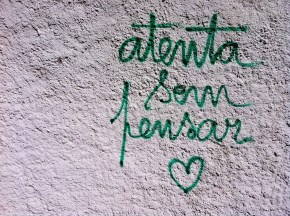 atenta
sem
pensar